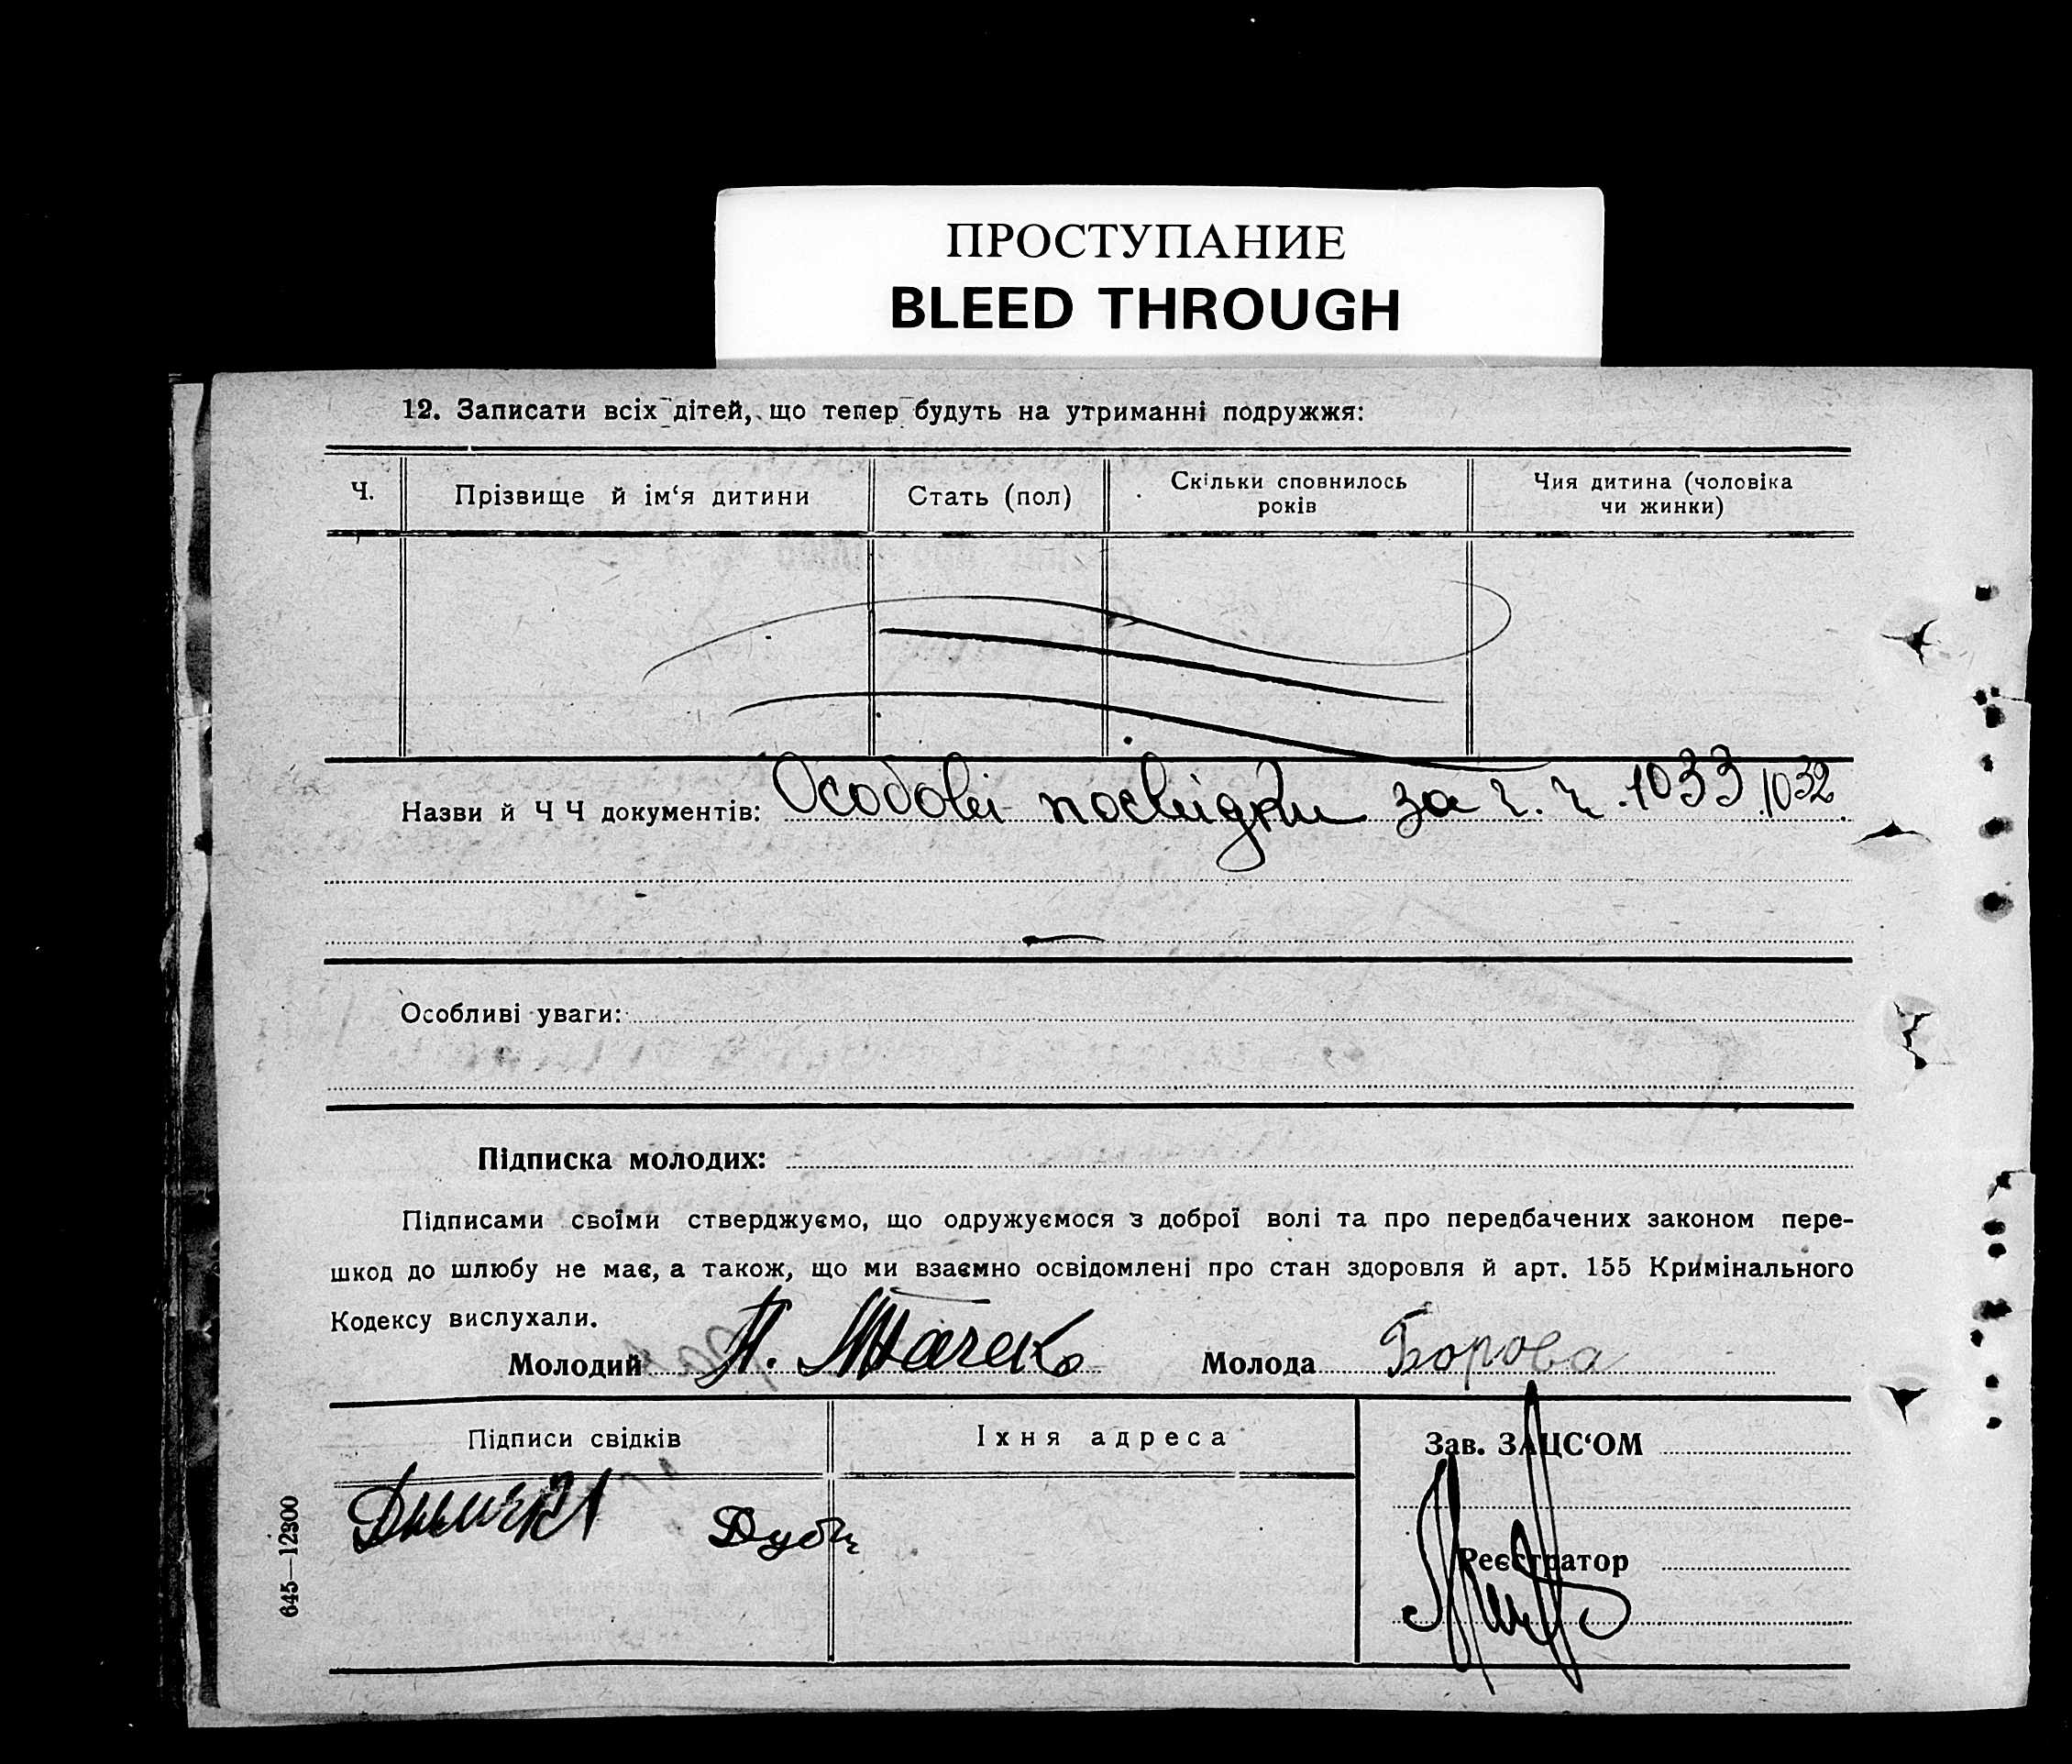 ПРОСТУПАНИЕ
BLEED THROUGH
12. Записати всіх дітей, що тепер будуть на утриманні подружжя:
Ч.
Прізвище й ім‘я дитини
Стать (пол)
Скільки сповнилось
років
Чия дитина (чоловіка
чи жинки)
Назви й Ч Ч документів: Особові посвідки за ч. ч. 1033. 1032.
Особливі уваги:
Підписка молодих:
Підписами своїми стверджуємо, що одружуємося з доброї волі та про передбачених законом пере-
шкод до шлюбу не має, а також, що ми взаємно освідомлені про стан здоровля й арт. 155 Кримінального
Кодексу вислухали.
Молодий
Молода Борова
Підписи свідків
Їхня адреса
Зав. ЗАЦС‘ОМ
Реєстратор
645—12300